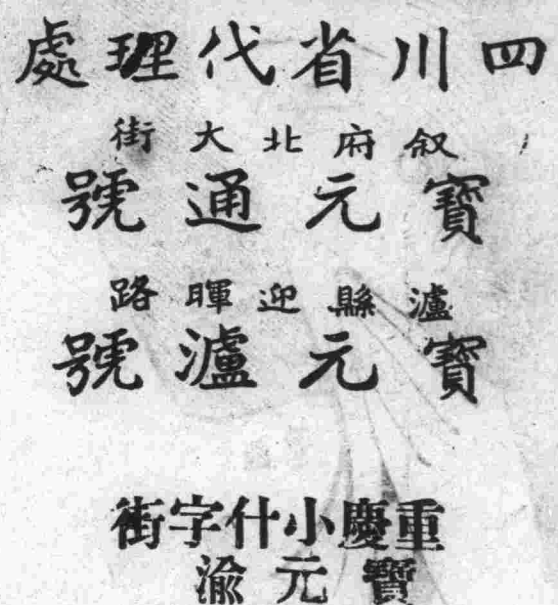 四川省代理處
叙府北大街
寶元通號
瀘縣迎暉路
寶元瀘號
重慶小什字街
寶元渝